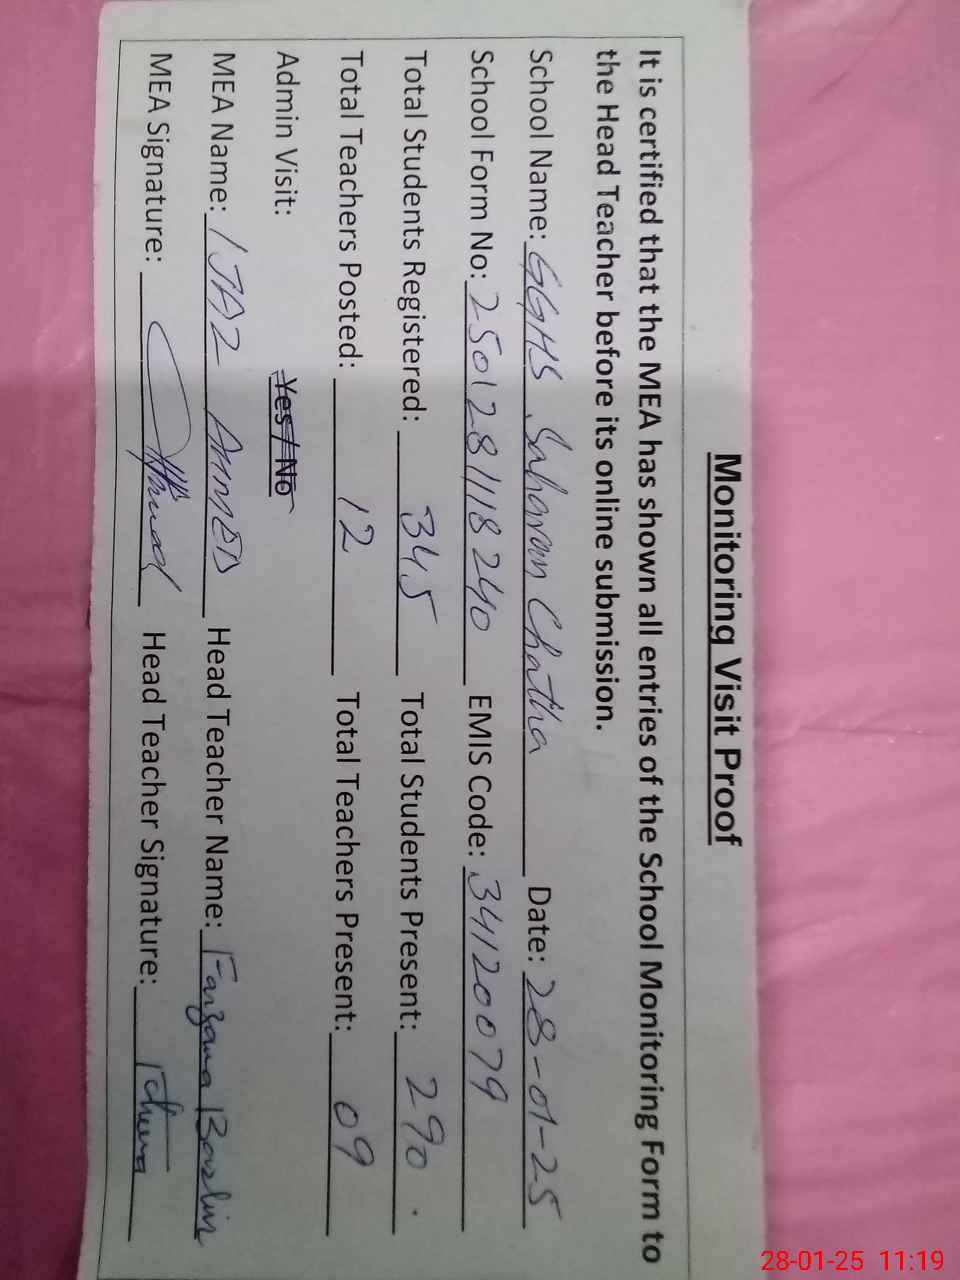 Monitoring Visit Proof
It is certified that the MEA has shown all entries of the School Monitoring Form to
the Head Teacher before its online submission.
School Name: GGHS Saharan Chatha Date: 28-01-25
School Form No: 2501281118240 EMIS Code: 34120079
Total Students Registered: 345 Total Students Present: 290
Total Teachers Posted: 12 Total Teachers Present: 09
Admin Visit: Yes / No
MEA Name: IJAZ AHMED Head Teacher Name: Farzana
MEA Signature: Head Teacher Signature:
28-01-25 11:19